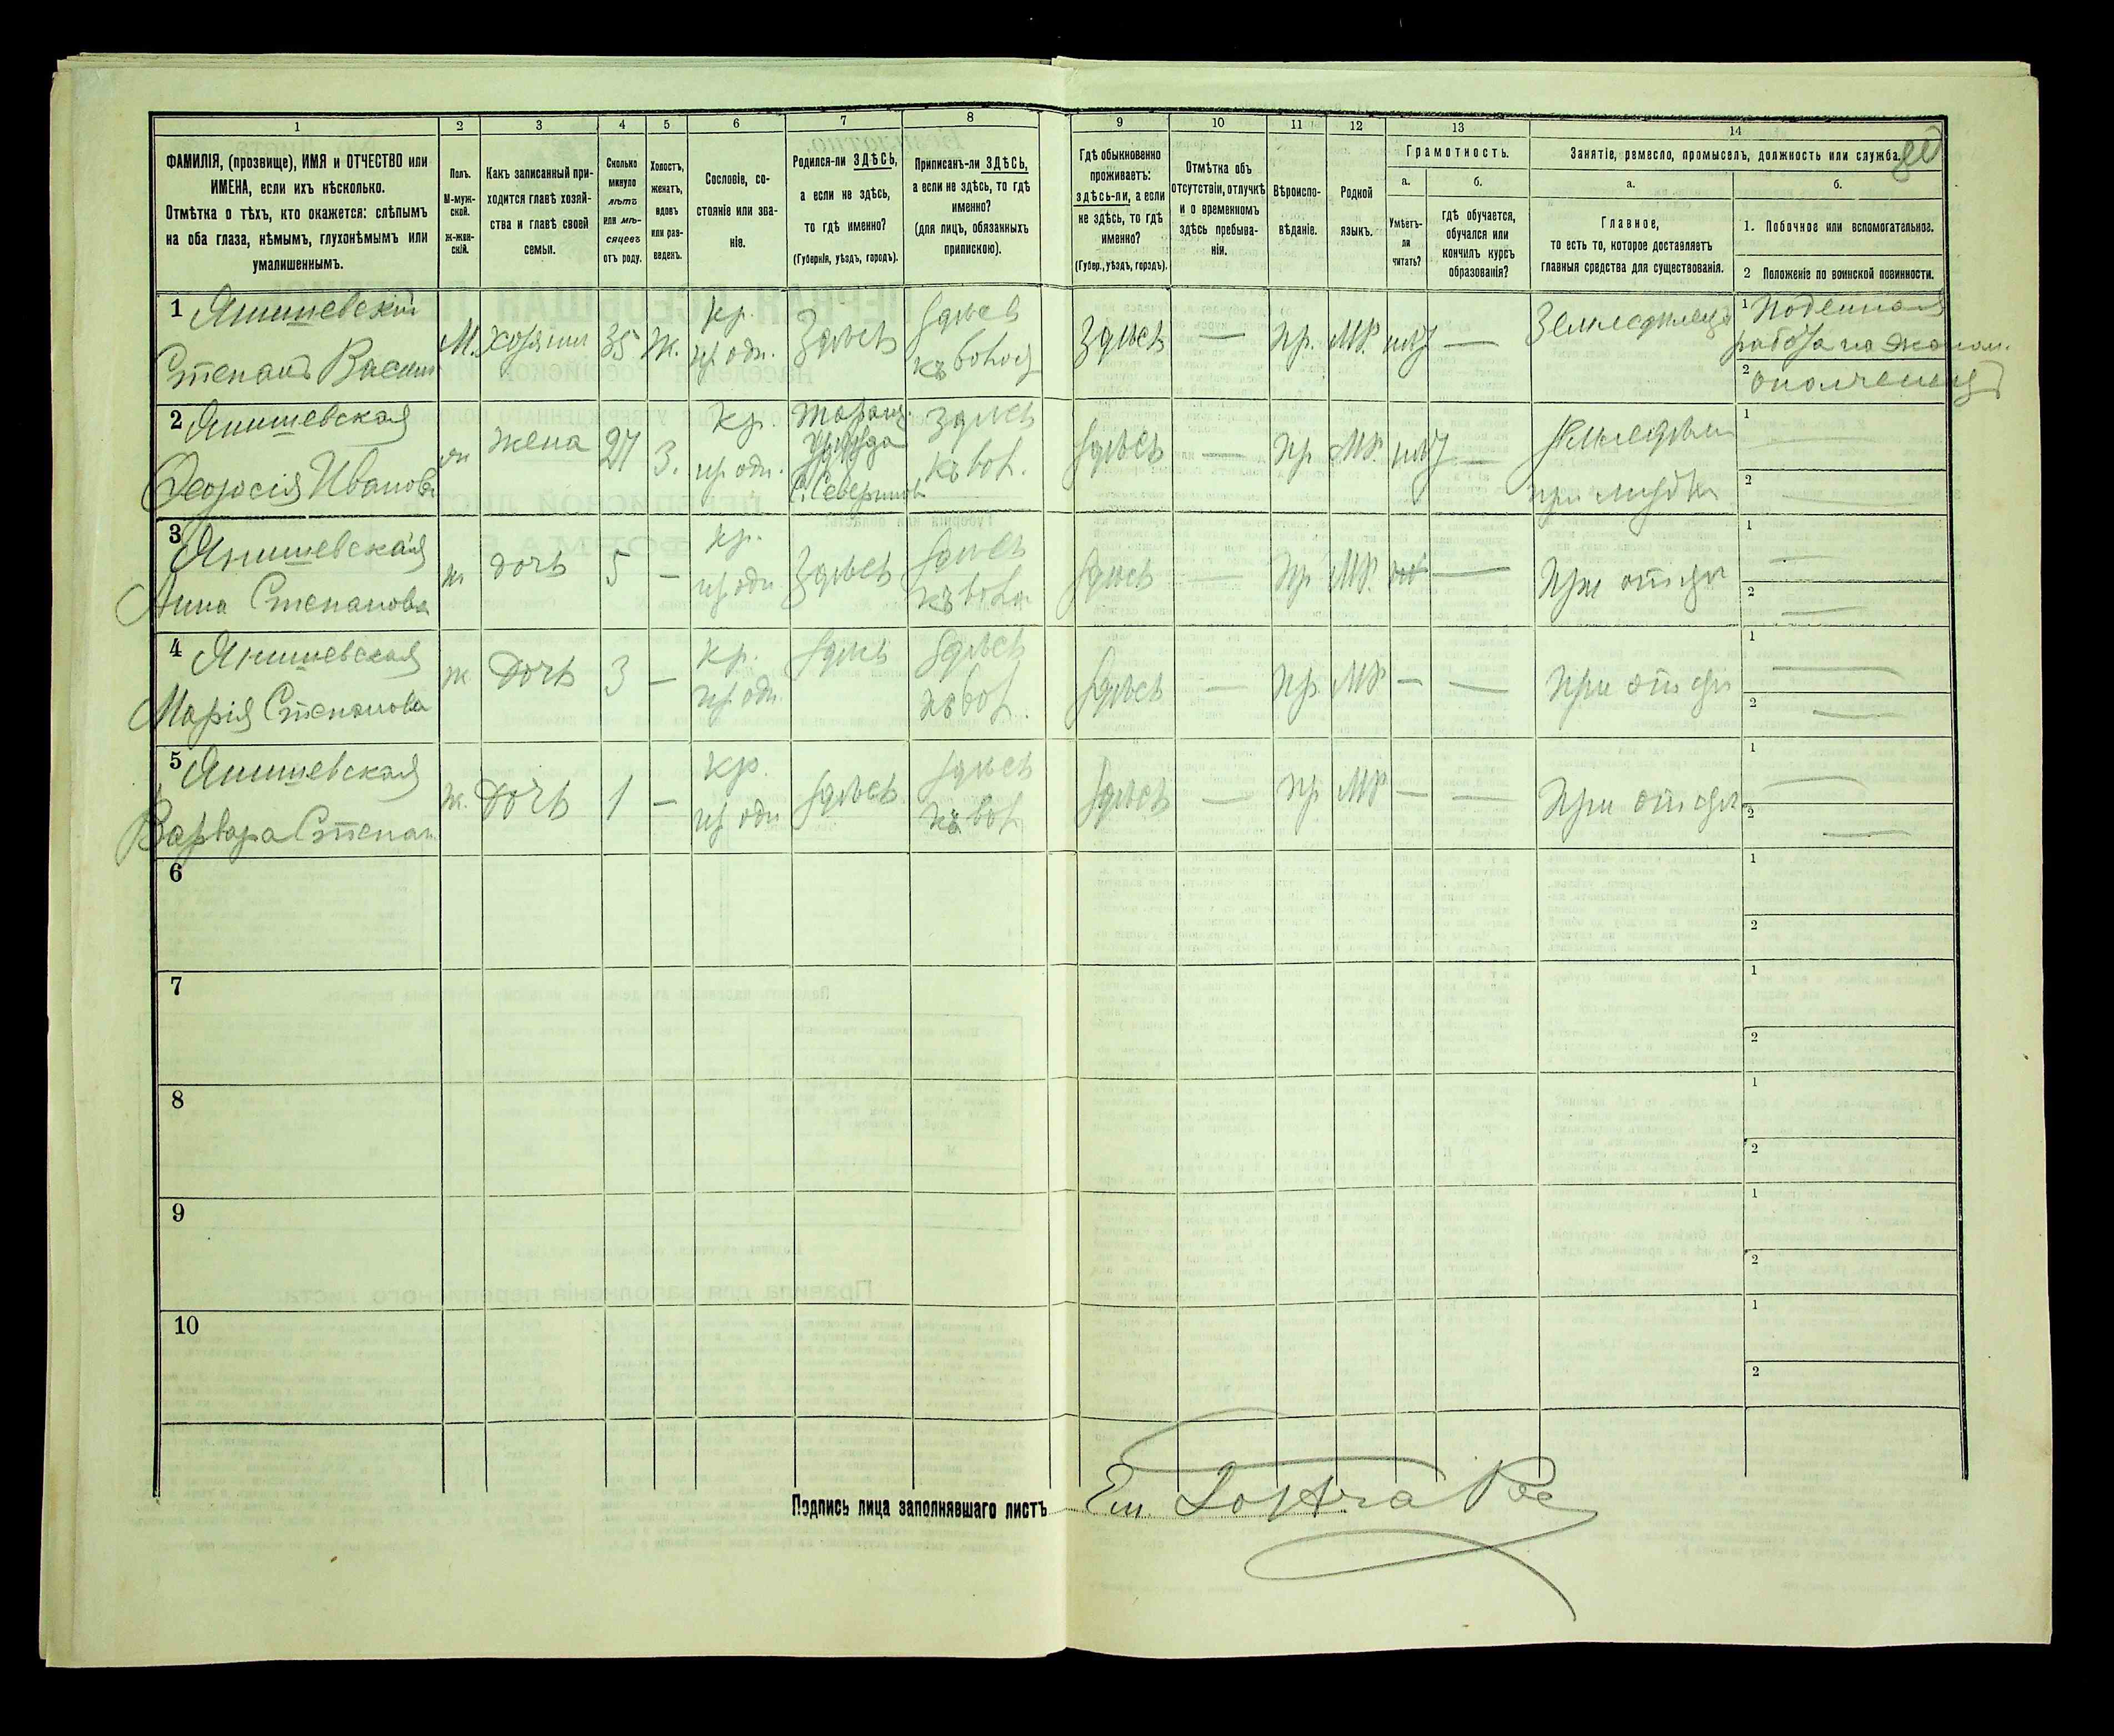 1 2 3 4 5 6 7 8 9 10 11 12 13 14
ФАМИЛІЯ, (прозвище), ИМЯ и ОТЧЕСТВО или
ИМЕНА, если ихъ нѣсколько.
Отмѣтка о тѣхъ, кто окажется: слѣпымъ
на оба глаза, нѣмымъ, глухонѣмымъ или
умалишеннымъ.
Полъ.
М-муж-
ской.
Ж-жен-
скій.
Какъ записанный при-
ходится главѣ хозяй-
ства и главѣ своей
семьи.
Сколько
минуло
лѣтъ
или мѣ-
сяцевъ
отъ роду.
Холостъ,
женатъ,
вдовъ
или раз-
веденъ.
Сословіе, со-
стояніе или зва-
ніе.
Родился-ли ЗДѢСЬ,
а если не здѣсь,
то гдѣ именно?
(Губернія, уѣздъ, городъ).
Приписанъ-ли ЗДѢСЬ,
а если не здѣсь, то гдѣ
именно?
(для лицъ, обязанныхъ
припискою).
Гдѣ обыкновенно
проживаетъ:
здѣсь-ли, а если
не здѣсь, то гдѣ
именно?
(Губер., уѣздъ, городъ).
Отмѣтка объ
отсутствіи, отлучкѣ
и о временномъ
здѣсь пребыва-
ніи.
Вѣроиспо-
вѣданіе.
Родной
языкъ.
Грамотность.
а.
Умѣетъ-
ли
читать?
б.
гдѣ обучается,
обучался или
кончилъ курсъ
образованія?
Занятіе, ремесло, промыселъ, должность или служба.
а.
Главное,
то есть то, которое доставляетъ
главныя средства для существованія.
б.
1. Побочное или вспомогательное.
2 Положеніе по воинской повинности.
1 Янишевскій
Степанъ Васил
М. хозяинъ 35 Ж.
кр.
Здѣсь
Здѣсь
Здѣсь — Пр. МР. — Земледѣлецъ
1 Поденная
работа
2 ополченецъ
2 Янишевская
Феодосія Иванова
жена 27 З.
Кр.
С. Севериновк
Здѣсь
Здѣсь — Пр МР. —
при мужѣ
1
2
3 Янишевская
Анна Степанова
ж дочь 5 —
кр.
Здѣсь
Здѣсь
Здѣсь — Пр МР. — При отцѣ
1
2
4 Янишевская
Марія Степанова
ж Дочь 3 —
кр.
Здѣсь
Здѣсь
Здѣсь — Пр МР — — При отцѣ
1
2
5 Янишевская
Варвара Степан
ж. Дочь 1 —
Кр.
Здѣсь
Здѣсь
Здѣсь — Пр МР — — При отцѣ
1
2
6 1
2
7 1
2
8 1
2
9 1
2
10 1
2
Подпись лица заполнявшаго листъ